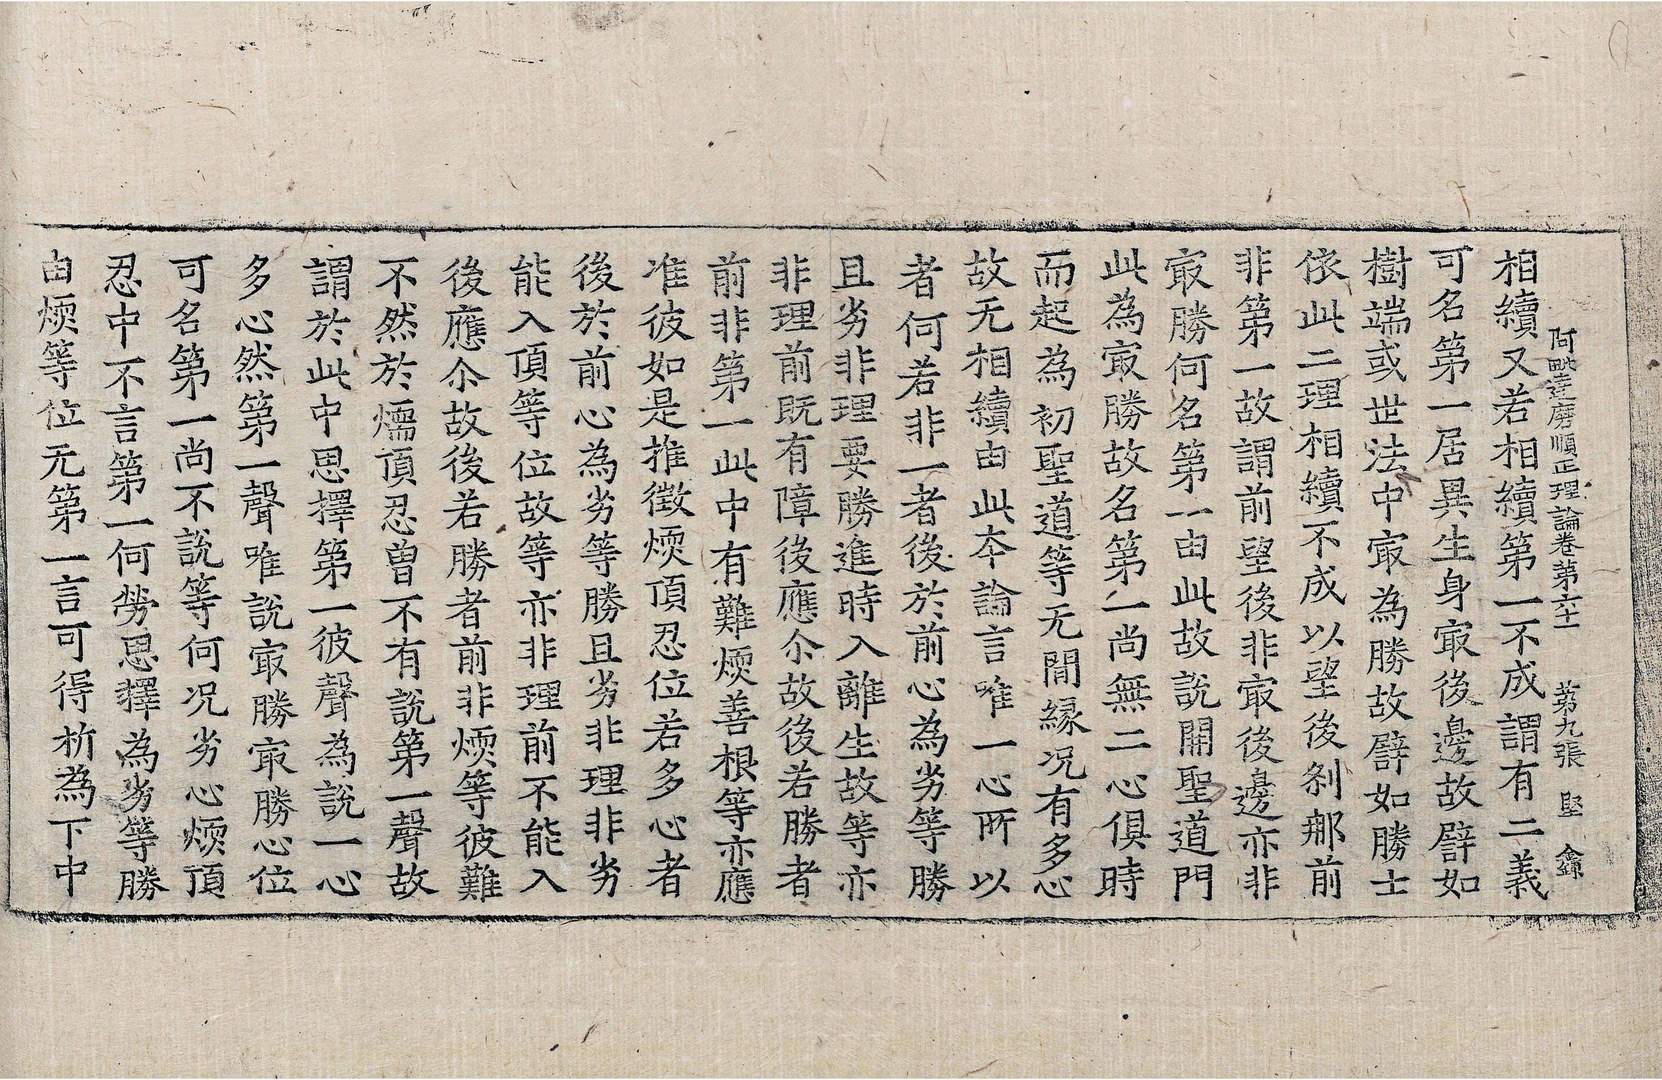 阿毗達磨順正理論卷第六十一 第九張 堅
相續又若相續第一不成謂有二義
可名第一居異生身㝡後邊故譬如
樹端或世法中㝡為勝故譬如勝士
依此二理相續不成以望後剎那前
非第一故謂前望後非㝡後邊亦非
㝡勝何名第一由此故說開聖道門
此為㝡勝故名第一尚無二心俱時
而起為初聖道等无間緣况有多心
故无相續由此本論言唯一心所以
者何若非一者後於前心為劣等勝
且劣非理要勝進時入離生故等亦
非理前既有障後應尒故後若勝者
前非第一此中有難煗善根等亦應
准彼如是推徵煗頂忍位若多心者
後於前心為劣等勝且劣非理非劣
能入頂等位故等亦非理前不能入
後應尒故後若勝者前非煗等彼難
不然於燸頂忍曾不有說第一聲故
謂於此中思擇第一彼聲為說一心
多心然第一聲唯說㝡勝㝡勝心位
可名第一尚不說等何况劣心煗頂
忍中不言第一何勞思擇為劣等勝
由煗等位无第一言可得析為下中